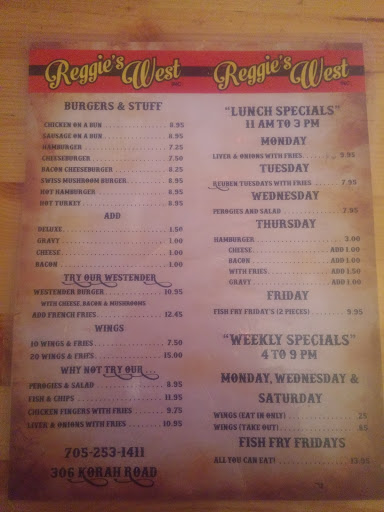 Reggie's West INC.
BURGERS & STUFF
CHICKEN ON A BUN 8.95
SAUSAGE ON A BUN 8.95
HAMBURGER 7.25
CHEESEBURGER 7.50
BACON CHEESEBURGER 8.25
SWISS MUSHROOM BURGER 8.95
HOT HAMBURGER 8.95
HOT TURKEY 8.95
ADD
DELUXE 1.50
GRAVY 1.00
CHEESE 1.00
BACON 1.00
TRY OUR WESTENDER
WESTENDER BURGER 10.95
WITH CHEESE, BACON & MUSHROOMS
ADD FRENCH FRIES 12.45
WINGS
10 WINGS & FRIES 7.50
20 WINGS & FRIES 15.00
WHY NOT TRY OUR ...
PEROGIES & SALAD 8.95
FISH & CHIPS 11.95
CHICKEN FINGERS WITH FRIES 9.75
LIVER & ONIONS WITH FRIES 10.95
705-253-1411
306 KORAH ROAD
Reggie's West INC.
"LUNCH SPECIALS"
11 AM TO 3 PM
MONDAY
LIVER & ONIONS WITH FRIES 9.95
TUESDAY
REUBEN TUESDAYS WITH FRIES 7.95
WEDNESDAY
PEROGIES AND SALAD 7.95
THURSDAY
HAMBURGER 3.00
CHEESE ADD 1.00
BACON ADD 1.00
WITH FRIES ADD 1.50
GRAVY ADD 1.00
FRIDAY
FISH FRY FRIDAY'S (2 PIECES) 9.95
"WEEKLY SPECIALS"
4 TO 9 PM
MONDAY, WEDNESDAY &
SATURDAY
WINGS (EAT IN ONLY) .25
WINGS (TAKE OUT) .85
FISH FRY FRIDAYS
ALL YOU CAN EAT! 12.95